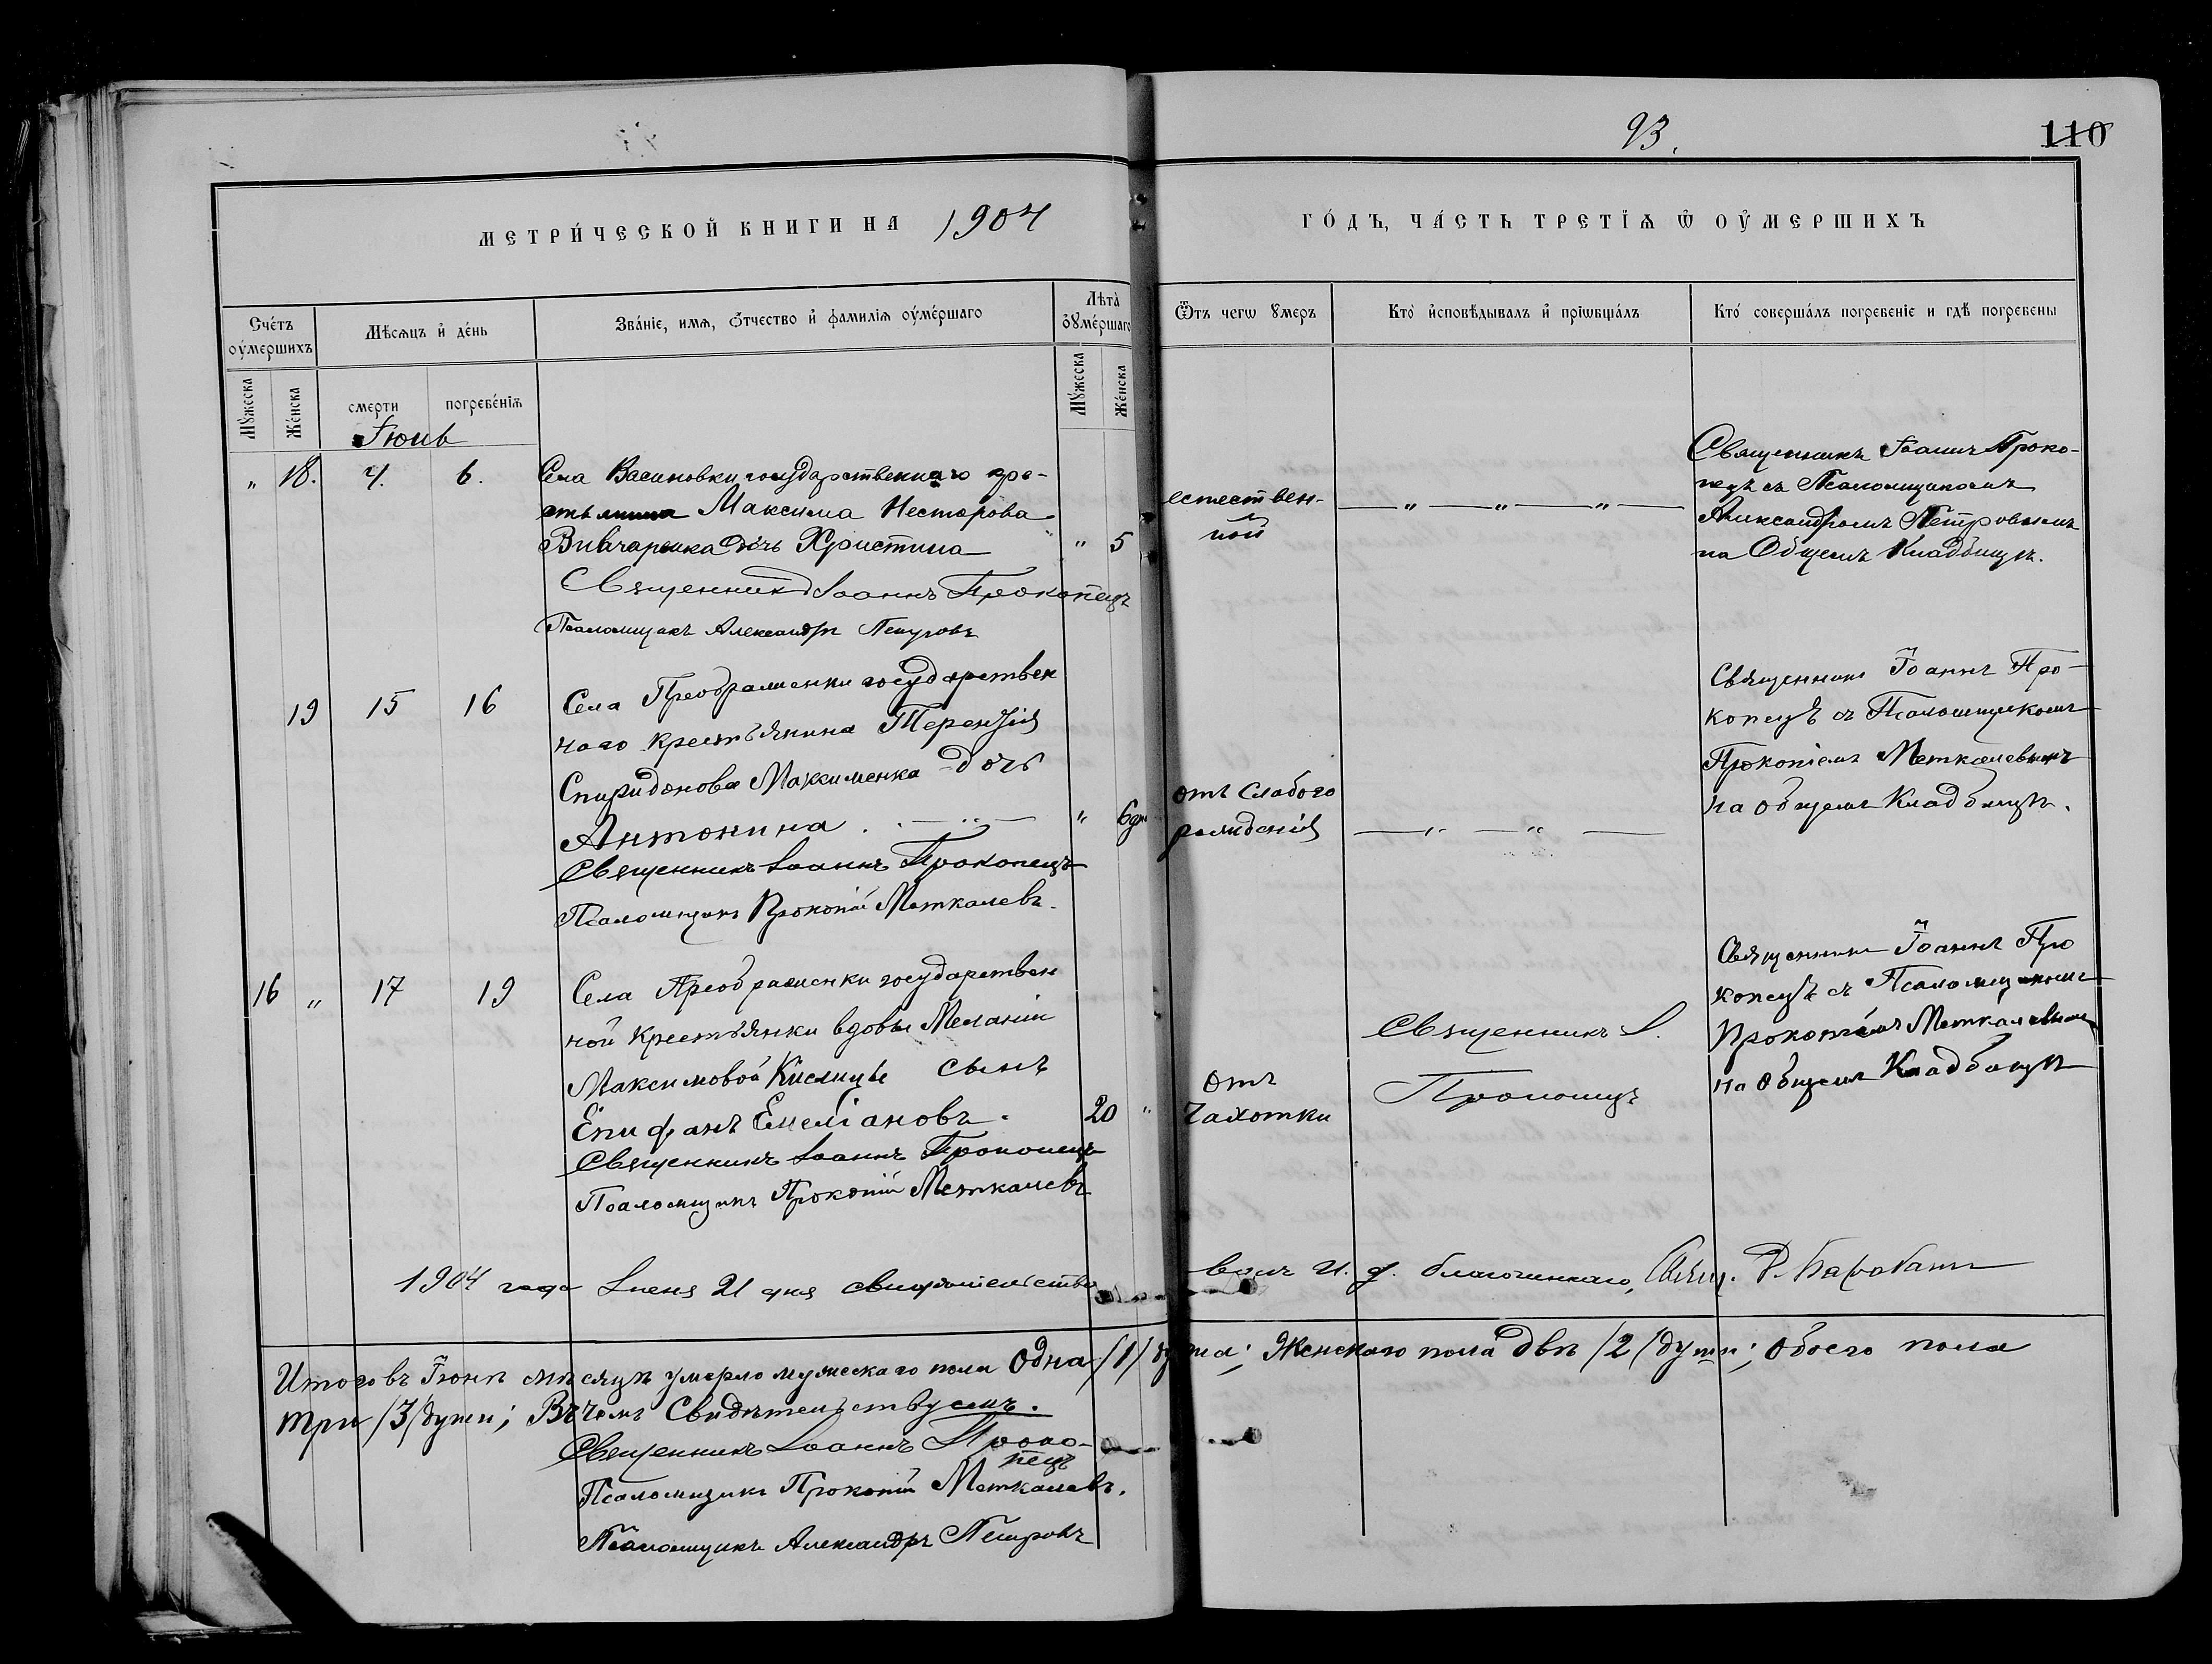 93.
110
МЕТРИ́ЧЕСКОЙ КНИГИ НА 1904
ГО́ДЪ, ЧА́СТЬ ТРЕТІѦ Ѽ ОУ҆МЕРШИХЪ
Счетъ оу҆мершихъ
Мѣсяцъ и҆ де́нь
Зва́ніе, имѧ, ѻтчество и҆ фамиліѧ оуме́ршаго
Лѣта̀ оуме́ршаго
Ѿтъ чегѡ ᲂумеръ
Кто̀ и҆сповѣдывалъ и҆ прїѡбща́лъ
Кто́ соверша́лъ погребеніе и гдѣ погребены
Мꙋжеска
Же́нска
смерти
погребе́нїѧ
Мꙋжеска
Же́нска
Іюнь
" 18. 4. 6.
Села Васиновки государственнаго кре-
стьянина Максима Несторова
Вивчаренка дочь Христина " 5
Священникъ Іоаннъ Прокопецъ
Псаломщикъ Александръ Петровъ
естествен-
ной
— " — " — " —
Священникъ Іоаннъ Проко-
пецъ съ Псаломщикомъ
Александромъ Петровымъ
на Общемъ Кладбищѣ.
19 15 16
Села Преображенки государствен
наго крестьянина Терентія
Спиридонова Максименка дочь
Антонина " 6дн
Священникъ Іоаннъ Прокопецъ
Псаломщикъ Прокопій Меткалевъ.
отъ слабого
рожденія
— " — " —
Священникъ Іоаннъ Про-
копецъ съ Псаломщикомъ
Прокопіемъ Меткалевымъ
на общемъ Кладбищѣ.
16 " 17 19
Села Преображенки государствен
ной крестьянки вдовы Меланіи
Максимовой Кислицы сынъ
Епифанъ Емеліановъ. 20 "
Священникъ Іоаннъ Прокопецъ
Псаломщикъ Прокопій Меткалевъ
отъ
чахотки
Священникъ І.
Прокопецъ
Священникъ Іоаннъ Про
копецъ съ Псаломщикомъ
Прокопіемъ Меткалевымъ
на общемъ Кладбищѣ
1904 года Іюня 21 дня свидѣтельство
валъ И. д. благочиннаго, Свящ. Р. Барабашъ
Итого въ Іюнѣ мѣсяцѣ умерло мужескаго пола Одна /1/ душа; Женскаго пола двѣ /2/ души; обоего пола
три /3/ души; Въ чемъ Свидѣтельствуемъ.
Священникъ Іоаннъ Проко-
пецъ
Псаломщикъ Прокопій Меткалевъ.
Псаломщикъ Александръ Петровъ